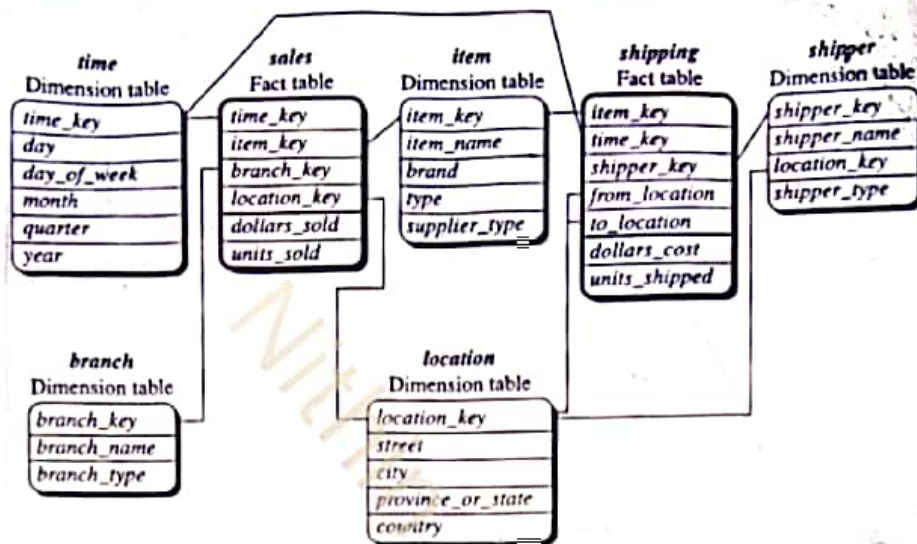 time
Dimension table
time_key
day
day_of_week
month
quarter
year
sales
Fact table
time_key
item_key
branch_key
location_key
dollars_sold
units_sold
item
Dimension table
item_key
item_name
brand
type
supplier_type
shipping
Fact table
item_key
time_key
shipper_key
from_location
to_location
dollars_cost
units_shipped
shipper
Dimension table
shipper_key
shipper_name
location_key
shipper_type
branch
Dimension table
branch_key
branch_name
branch_type
location
Dimension table
location_key
street
city
province_or_state
country